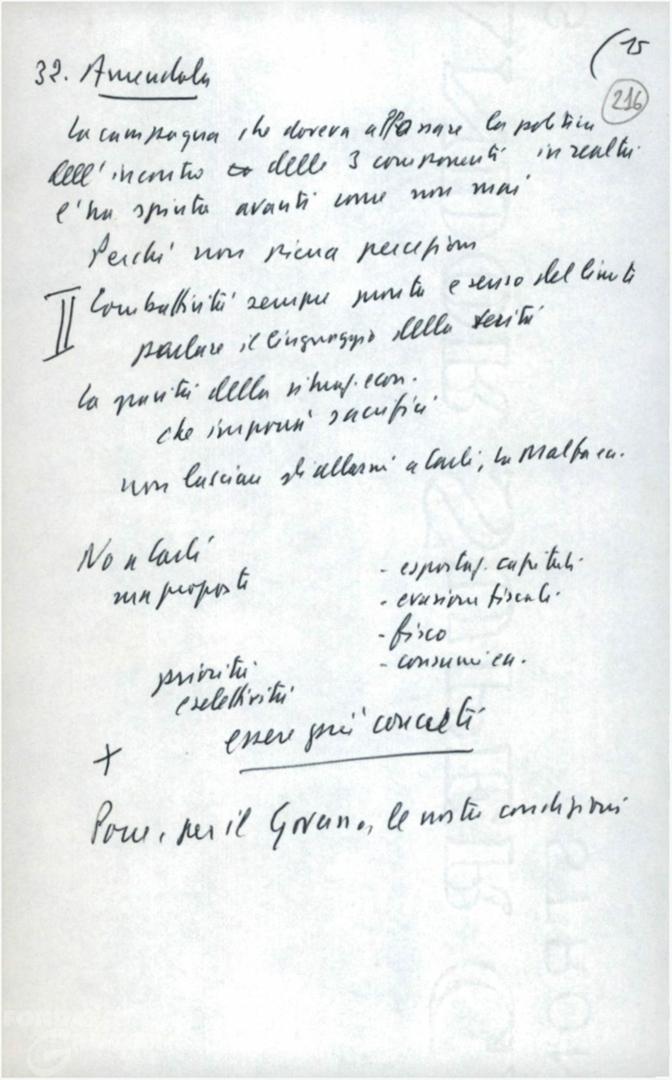 (15
216
32. Amendola
La campagna che doveva affossare la politica
dell'incontro delle 3 componenti in realtà
l'ha spinta avanti come non mai
Perché non piena percezione
II Combattività sempre pronta e senso del limite
parlare il linguaggio della verità
la gravità della situaz. econ.
che imporrà sacrifici
non lasciare gli allarmi a Carli, La Malfa ecc.
No a Carli
ma proposte
- esportaz. capitali
- evasione fiscale
- fisco
- consumi ecc.
priorità
e selettività
essere più concreti
+
Porre, per il Governo, le nostre condizioni
FOND
G